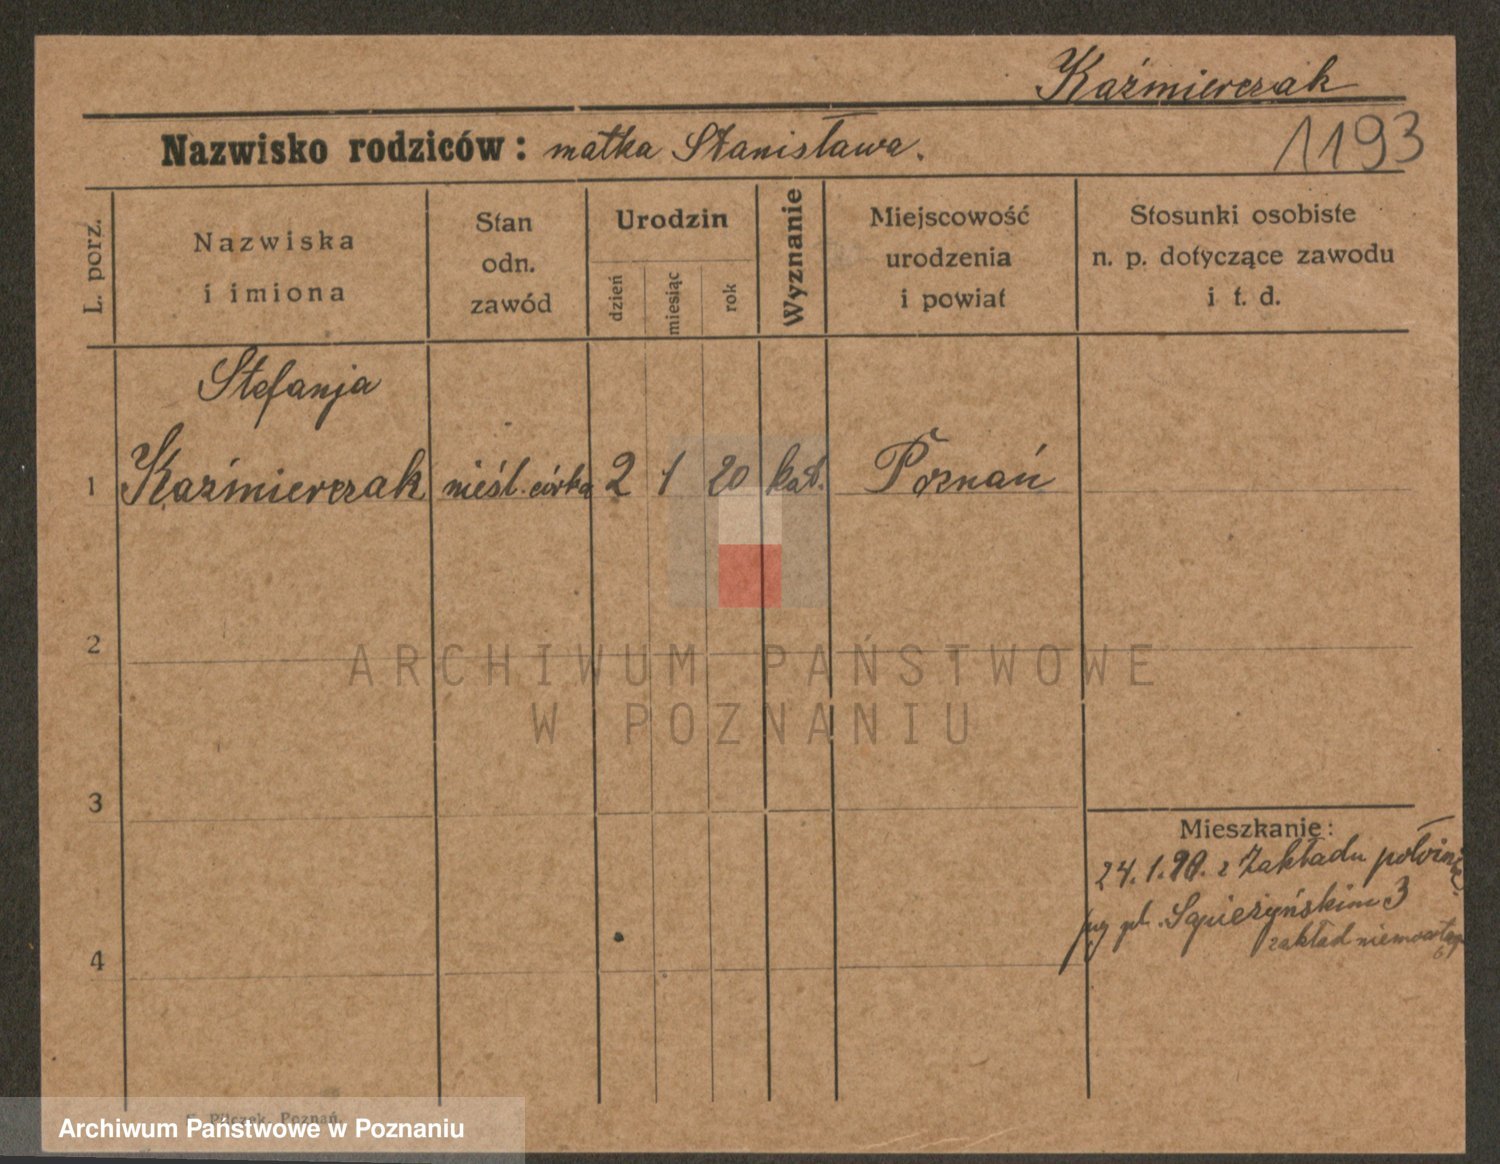 Kaźmierczak
Nazwisko rodziców: matka Stanisława.
1193
L. porz.
Nazwiska
i imiona
Stan
odn.
zawód
Urodzin
dzień
miesiąc
rok
Wyznanie
Miejscowość
urodzenia
i powiat
Stosunki osobiste
n. p. dotyczące zawodu
i t. d.
Stefanja
1 Kaźmierczak nieśl. córka 2 1 20 kat. Poznań
2
ARCHIWUM PAŃSTWOWE
W POZNANIU
3
Mieszkanie:
24. 1. 20. z Zakładu
pl. Sapieżyńskim 3
zakład
4
Pilczek, Poznań.
Archiwum Państwowe w Poznaniu